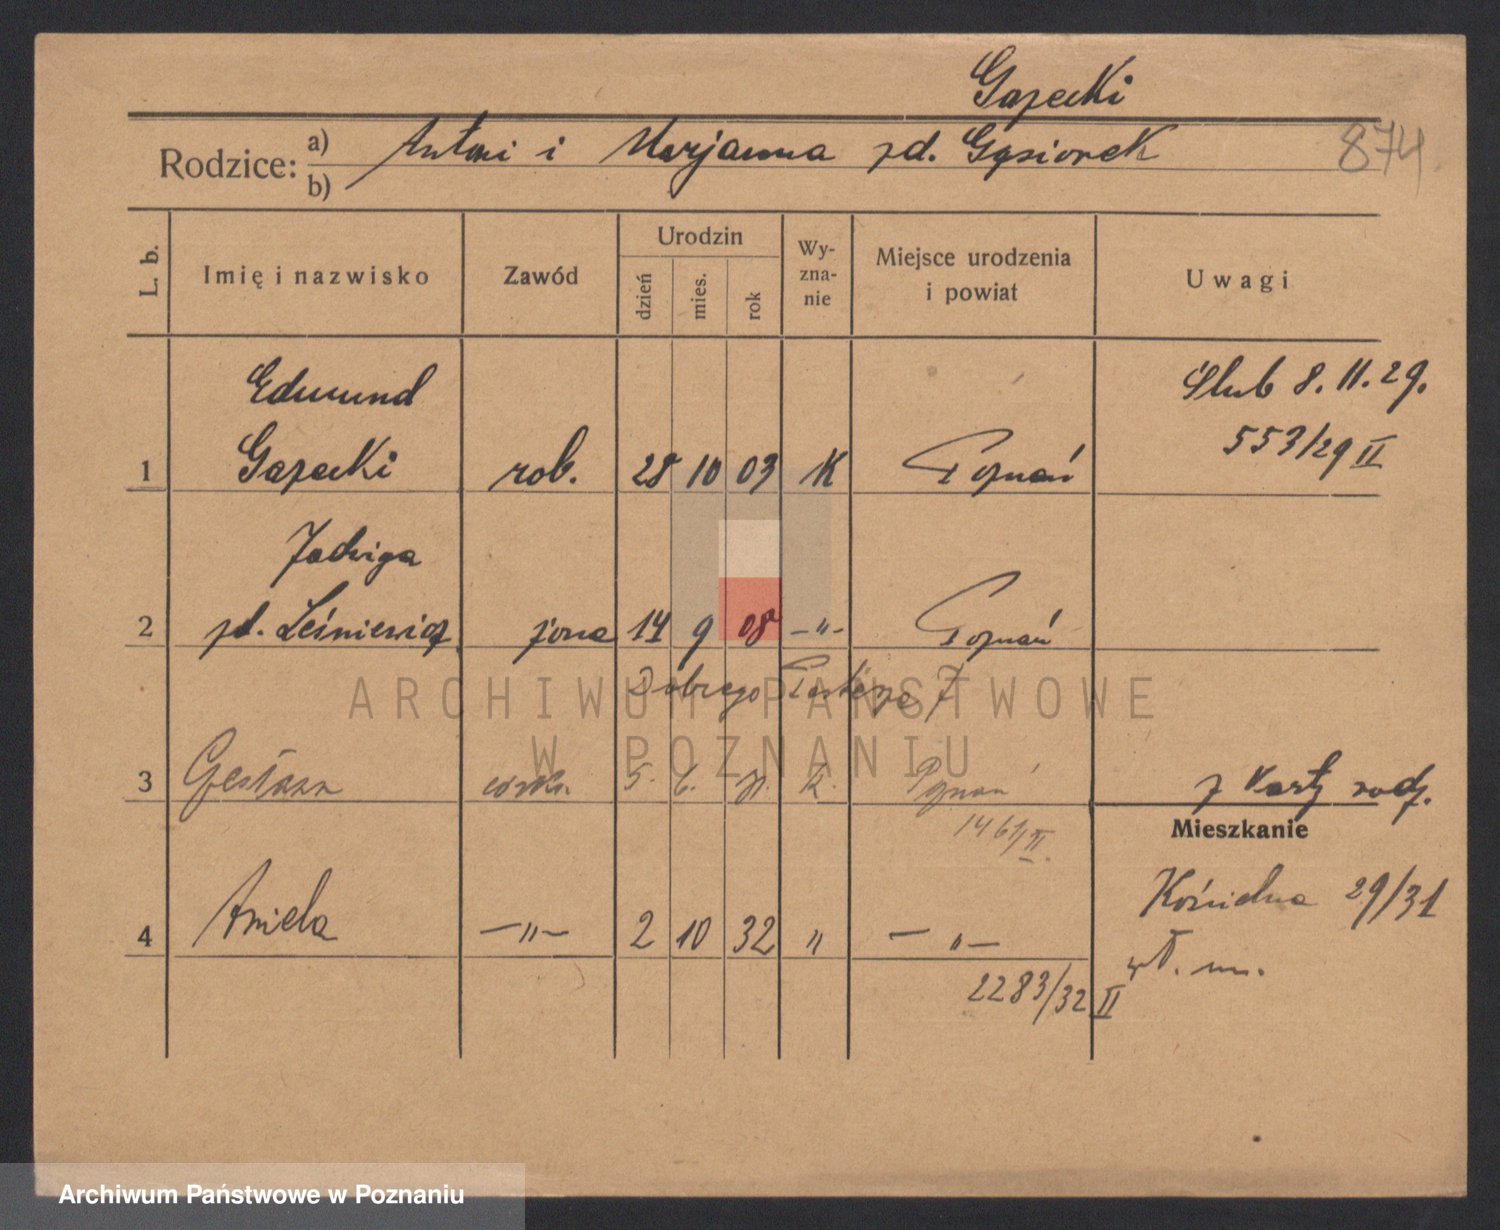 Gazecki
Rodzice: a) b) Antoni i Marjanna zd. Gąsiorek
874
L. b.
Imię i nazwisko
Zawód
Urodzin
dzień
mies.
rok
Wy-
zna-
nie
Miejsce urodzenia
i powiat
Uwagi
Edmund
Ślub 8. 11. 29.
553/29 II
1 Gazecki rob. 28 10 03 K Poznań
Jadwiga
2 zd. Leśniewicz żona 14 9 08 -"- Poznań
Dobrego Pasterza 7
3 córka 5. 6. 31. k. Poznań
z karty rodz.
Mieszkanie
Kościelna 29/31
4 Aniela -"- 2 10 32 " -"-
wł. m.
2283/32 II
ARCHIWUM PAŃSTWOWE
W POZNANIU
Archiwum Państwowe w Poznaniu